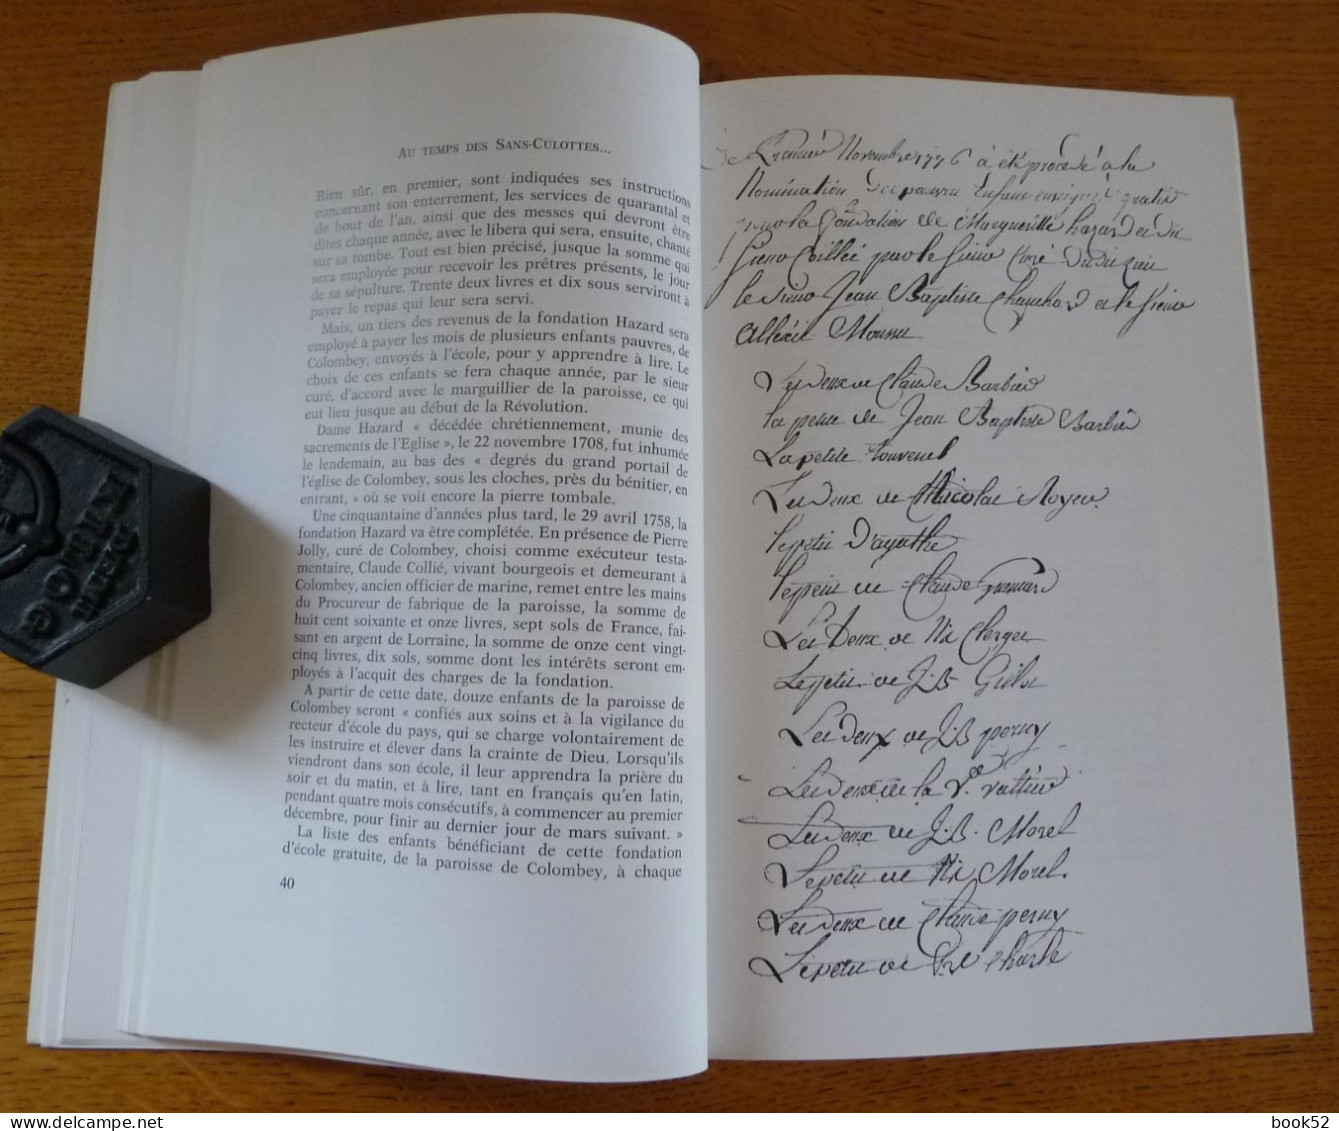 AU TEMPS DES SANS-CULOTTES...
Bien sûr, en premier, sont indiquées ses instructions
concernant son enterrement, les services de quarantal et
de bout de l'an, ainsi que des messes qui devront être
dites chaque année, avec le libera qui sera, ensuite, chanté
sur sa tombe. Tout est bien précisé, jusque la somme qui
sera employée pour recevoir les prêtres présents, le jour
de sa sépulture. Trente deux livres et dix sous serviront à
payer le repas qui leur sera servi.
Mais, un tiers des revenus de la fondation Hazard sera
employé à payer les mois de plusieurs enfants pauvres, de
Colombey, envoyés à l'école, pour y apprendre à lire. Le
choix de ces enfants se fera chaque année, par le sieur
curé, d'accord avec le marguillier de la paroisse, ce qui
eut lieu jusque au début de la Révolution.
Dame Hazard « décédée chrétiennement, munie des
sacrements de l'Eglise », le 22 novembre 1708, fut inhumée
le lendemain, au bas des « degrés du grand portail de
l'église de Colombey, sous les cloches, près du bénitier, en
entrant, » où se voit encore la pierre tombale.
Une cinquantaine d'années plus tard, le 29 avril 1758, la
fondation Hazard va être complétée. En présence de Pierre
Jolly, curé de Colombey, choisi comme exécuteur testa-
mentaire, Claude Collié, vivant bourgeois et demeurant à
Colombey, ancien officier de marine, remet entre les mains
du Procureur de fabrique de la paroisse, la somme de
huit cent soixante et onze livres, sept sols de France, fai-
sant en argent de Lorraine, la somme de onze cent vingt-
cinq livres, dix sols, somme dont les intérêts seront em-
ployés à l'acquit des charges de la fondation.
A partir de cette date, douze enfants de la paroisse de
Colombey seront « confiés aux soins et à la vigilance du
recteur d'école du pays, qui se charge volontairement de
les instruire et élever dans la crainte de Dieu. Lorsqu'ils
viendront dans son école, il leur apprendra la prière du
soir et du matin, et à lire, tant en français qu'en latin,
pendant quatre mois consécutifs, à commencer au premier
décembre, pour finir au dernier jour de mars suivant. »
La liste des enfants bénéficiant de cette fondation
d'école gratuite, de la paroisse de Colombey, à chaque
40
Novembre 1776 a été procédé a la
Nomination
la fondation de Margueritte hazard et du
Sieur Collée par le Sieur Curé
le Sieur Jean Baptiste Chanchard et le Sieur
Les deux de Claude Barbier
la petite de Jean Baptiste Barbier
La petite touvenel
Les deux de Nicolas Royer
le petit d'agathe
le petit de Claude
Les Deux de Nis Clerget
Le petit de J.B
Les deux de J.B perny
Les deux de la Ve vattier
Les deux de J.B. Morel
Le petit de Nis Morel.
Les deux de Claude perny
Le petit de Charle
book52